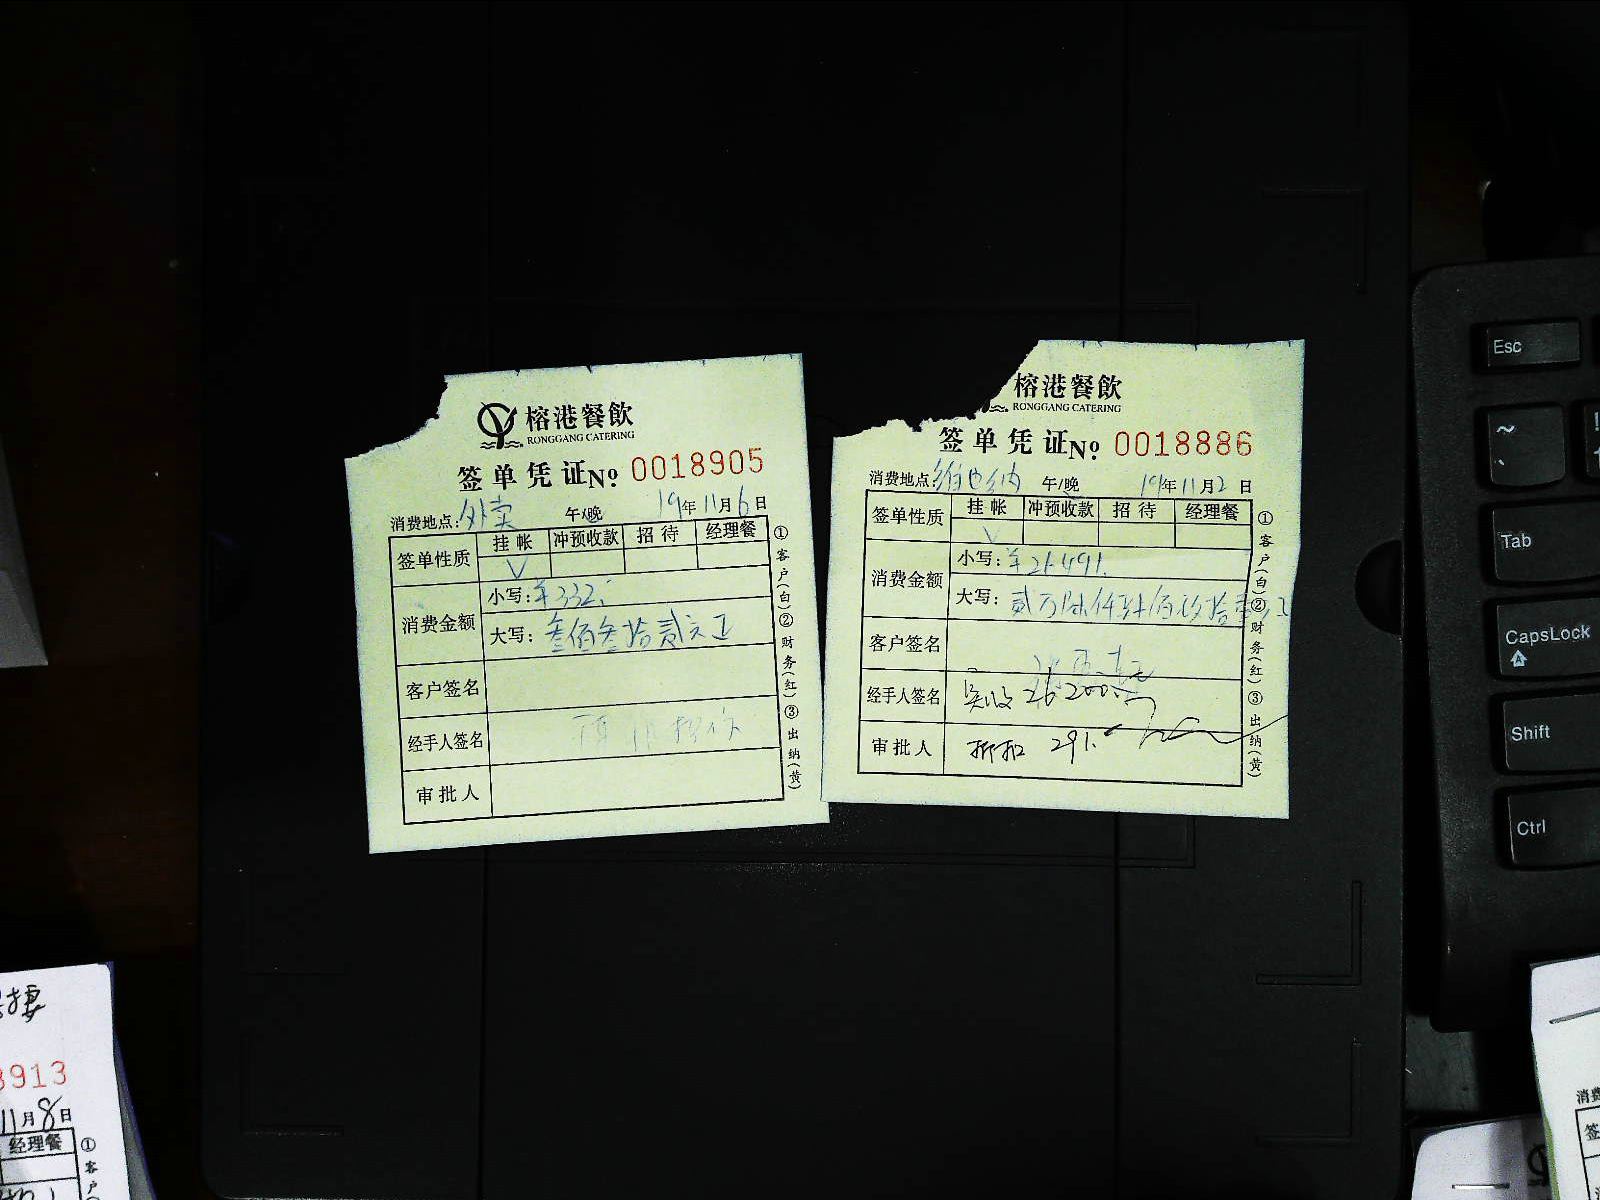 榕港餐飲
RONGGANG CATERING
签单凭证№ 0018905
消费地点:外卖 午/晚 19年11月6日
签单性质 挂帐 冲预收款 招待 经理餐
√
消费金额 小写:¥332.
大写:叁佰叁拾贰元正
客户签名
经手人签名
审批人
①客户(白)②财务(红)③出纳(黄)
榕港餐飲
RONGGANG CATERING
签单凭证№ 0018886
消费地点:维也纳 午/晚 19年11月2日
签单性质 挂帐 冲预收款 招待 经理餐
√
消费金额 小写:¥26491.
大写:贰万陆仟肆佰玖拾壹元正
客户签名
经手人签名 实收 26200.
审批人 折扣 291.
①客户(白)②财务(红)③出纳(黄)
Esc
~
Tab
CapsLock
Shift
Ctrl
8913
11月8日
经理餐
①客户